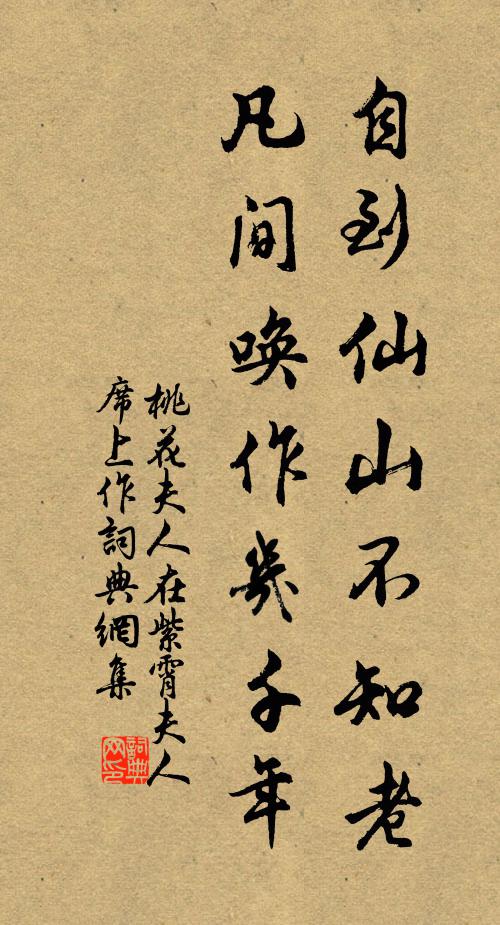 自到仙山不知老
凡間喚作幾千年
桃花夫人在紫霄夫人
席上作詞典網集
詞典
网印